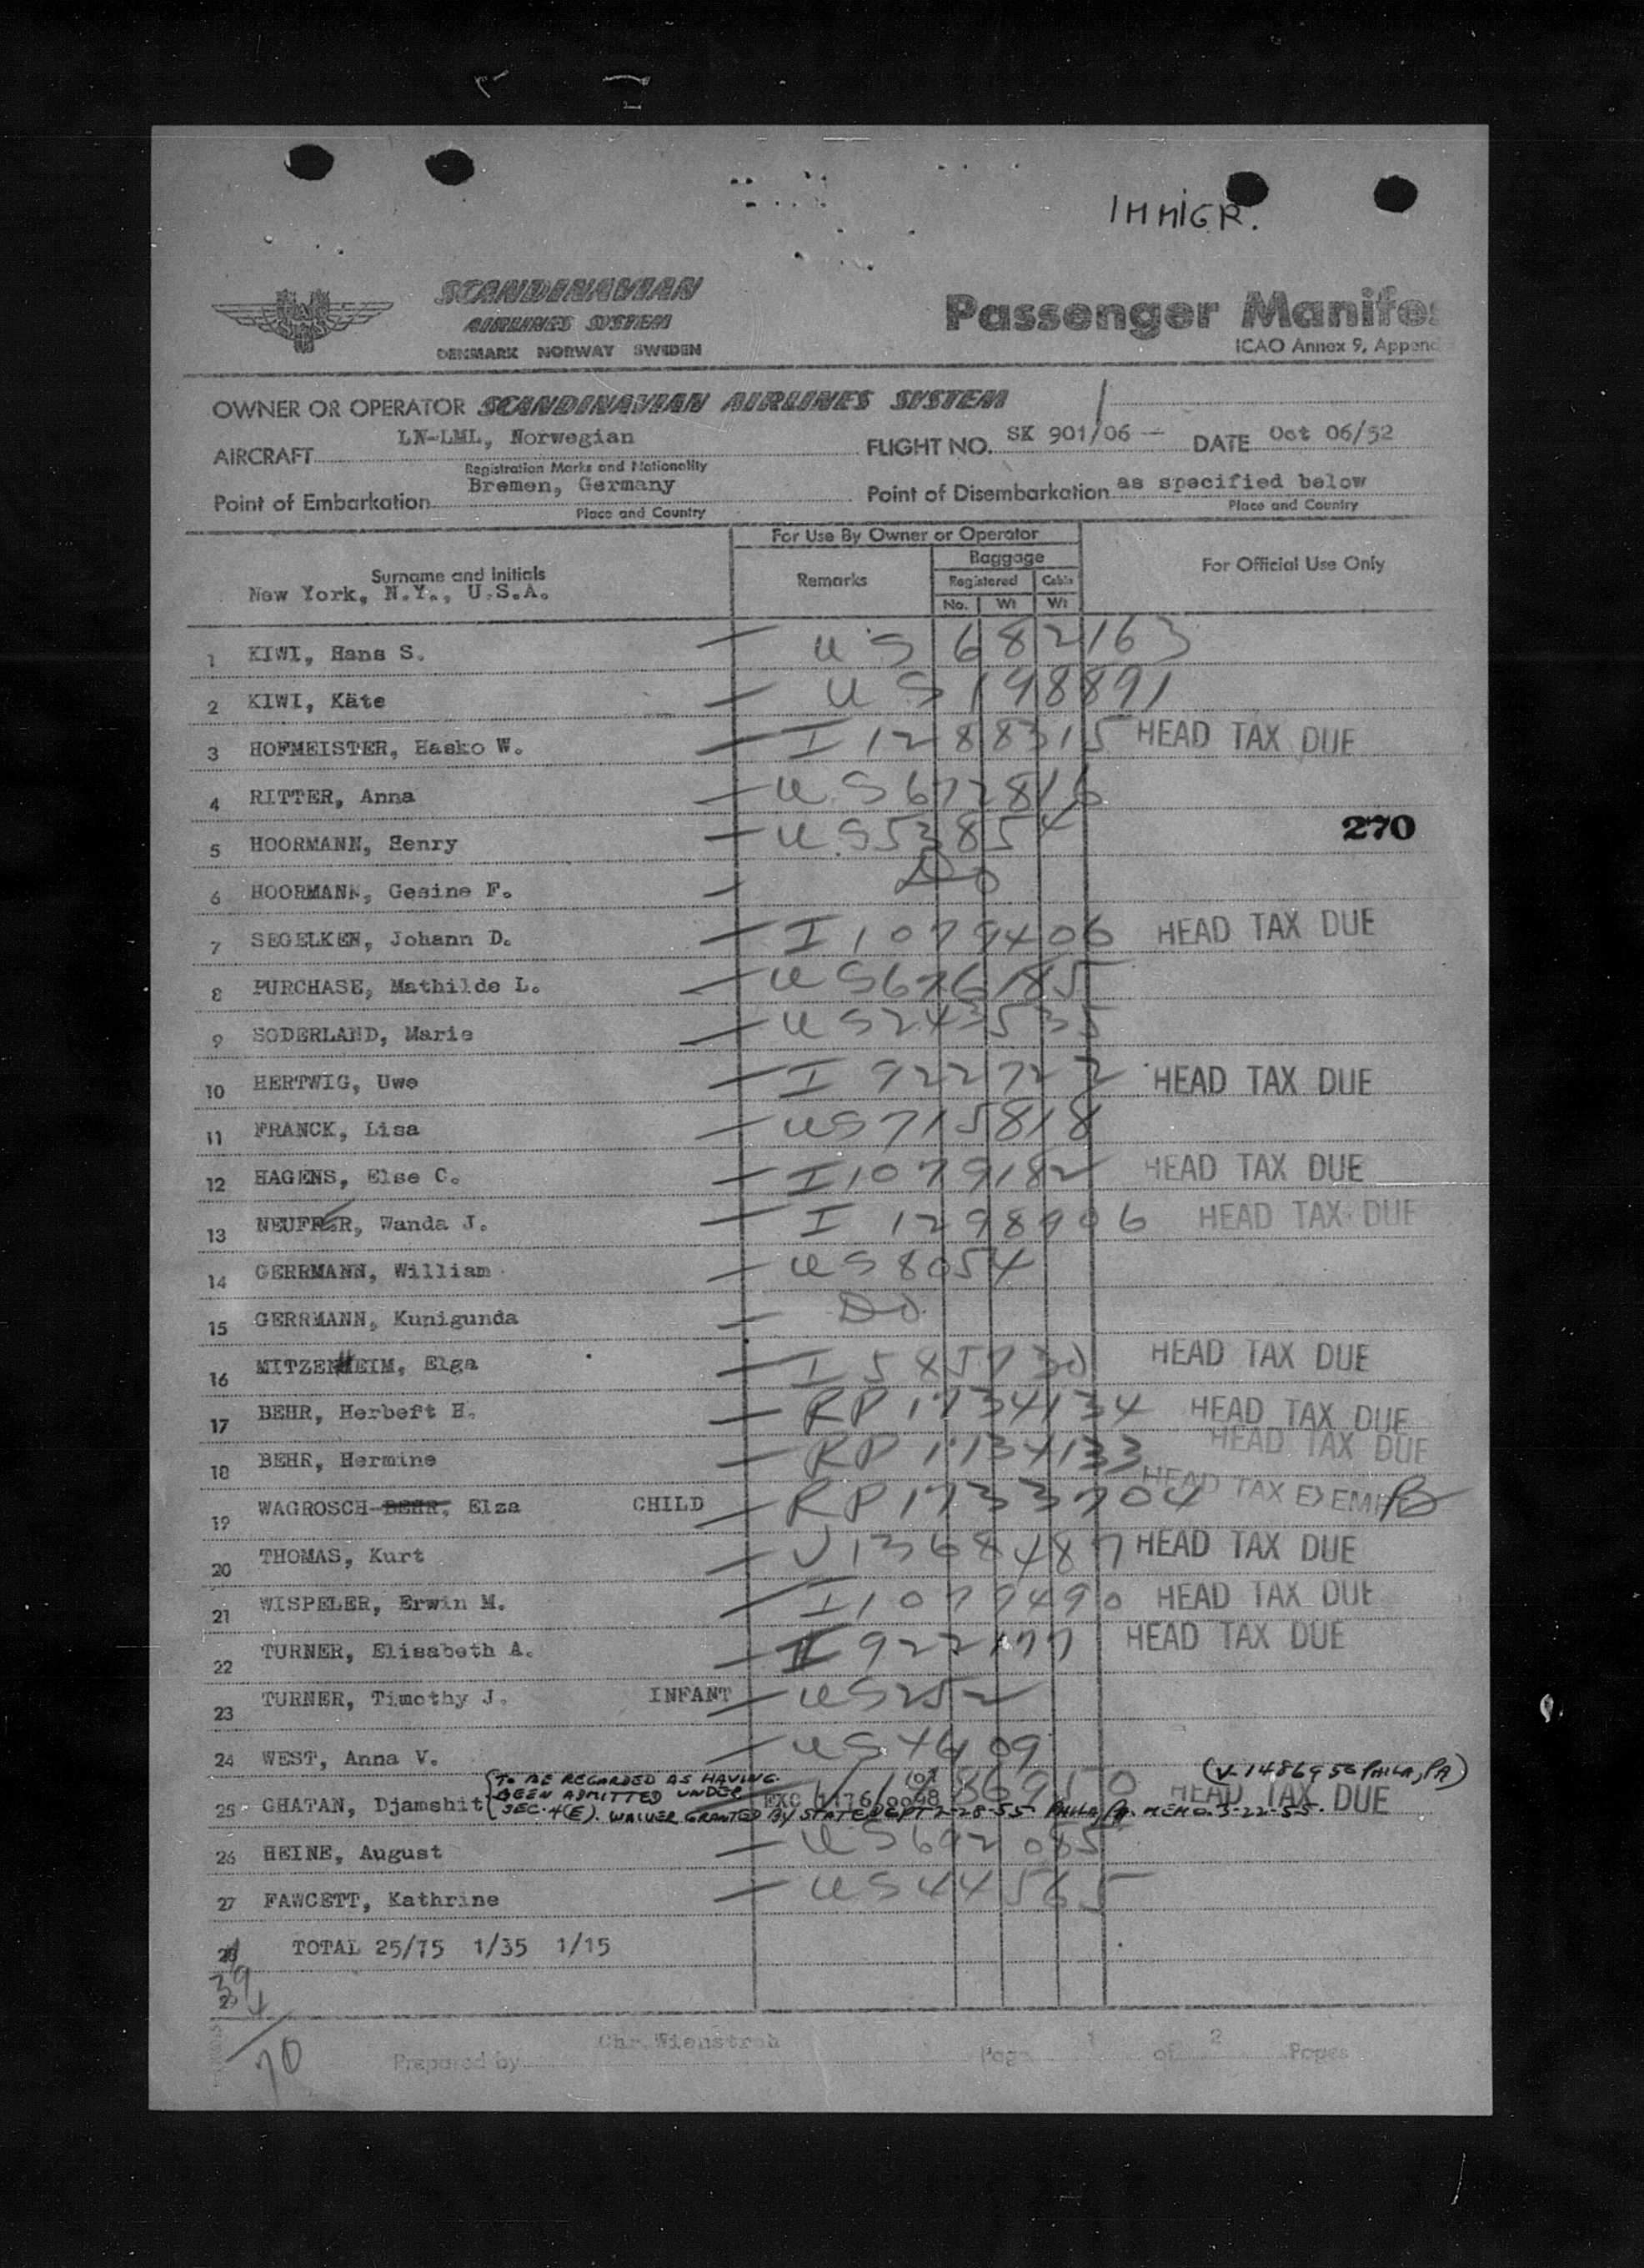 IMMIGR.
SCANDINAVIAN
AIRLINES SYSTEM
DENMARK NORWAY SWEDEN
Passenger Manifes
ICAO Annex 9, Append
OWNER OR OPERATOR SCANDINAVIAN AIRLINES SYSTEM
AIRCRAFT LN-LML, Norwegian FLIGHT NO. SK 901/06 — DATE Oct 06/52
Registration Marks and Nationality
Point of Embarkation Bremen, Germany Point of Disembarkation as specified below
Place and Country Place and Country
For Use By Owner or Operator
Surname and Initials Remarks Baggage For Official Use Only
Registered Cabin
No. Wt Wt
New York, N.Y., U.S.A.
1 KIWI, Hans S. — US 682163
2 KIWI, Käte — US 198891
3 HOFMEISTER, Hasko W. — I 1288315 HEAD TAX DUE
4 RITTER, Anna — US 672816
5 HOORMANN, Henry — US 53854 270
6 HOORMANN, Gesine F. — Do
7 SEGELKEN, Johann D. — I 1079406 HEAD TAX DUE
8 PURCHASE, Mathilde L. — US 676185
9 SODERLAND, Marie — US 243535
10 HERTWIG, Uwe — I 922722 HEAD TAX DUE
11 FRANCK, Lisa — US 715818
12 HAGENS, Else C. — I 1079182 HEAD TAX DUE
13 NEUFFER, Wanda J. — I 1298906 HEAD TAX DUE
14 GERRMANN, William — US 8054
15 GERRMANN, Kunigunda — Do
16 MITZENHEIM, Elga — I 545730 HEAD TAX DUE
17 BEHR, Herbert H. — RP 1734134 HEAD TAX DUE
18 BEHR, Hermine — RP 1734133 HEAD TAX DUE
19 WAGROSCH-BEHR, Elza CHILD — RP 1733704 HEAD TAX EXEMPT
20 THOMAS, Kurt — V 1368487 HEAD TAX DUE
21 WISPELER, Erwin M. — I 1079490 HEAD TAX DUE
22 TURNER, Elisabeth A. — I 922177 HEAD TAX DUE
23 TURNER, Timothy J. INFANT — US 252
24 WEST, Anna V. — US 46109
25 GHATAN, Djamshit {TO BE REGARDED AS HAVING BEEN ADMITTED UNDER SEC. 4(E). WAIVER GRANTED BY STATE DEPT 2-28-55 PHILA, PA. MEMO. 3-22-55. EXC 1176/ V 1486950 (V-1486950 PHILA, PA) HEAD TAX DUE
26 HEINE, August — US 692085
27 FAWCETT, Kathrine — US 44565
28 TOTAL 25/75 1/35 1/15
29
70
Prepared by Chr. Wienstroh Page 1 of 2 Pages